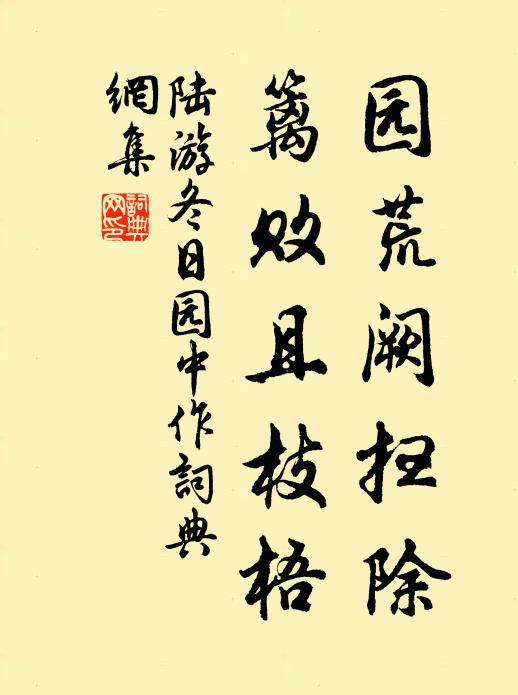 园荒阙扫除
篱败且枝梧
陆游冬日园中作词典
網集
詞典
网印